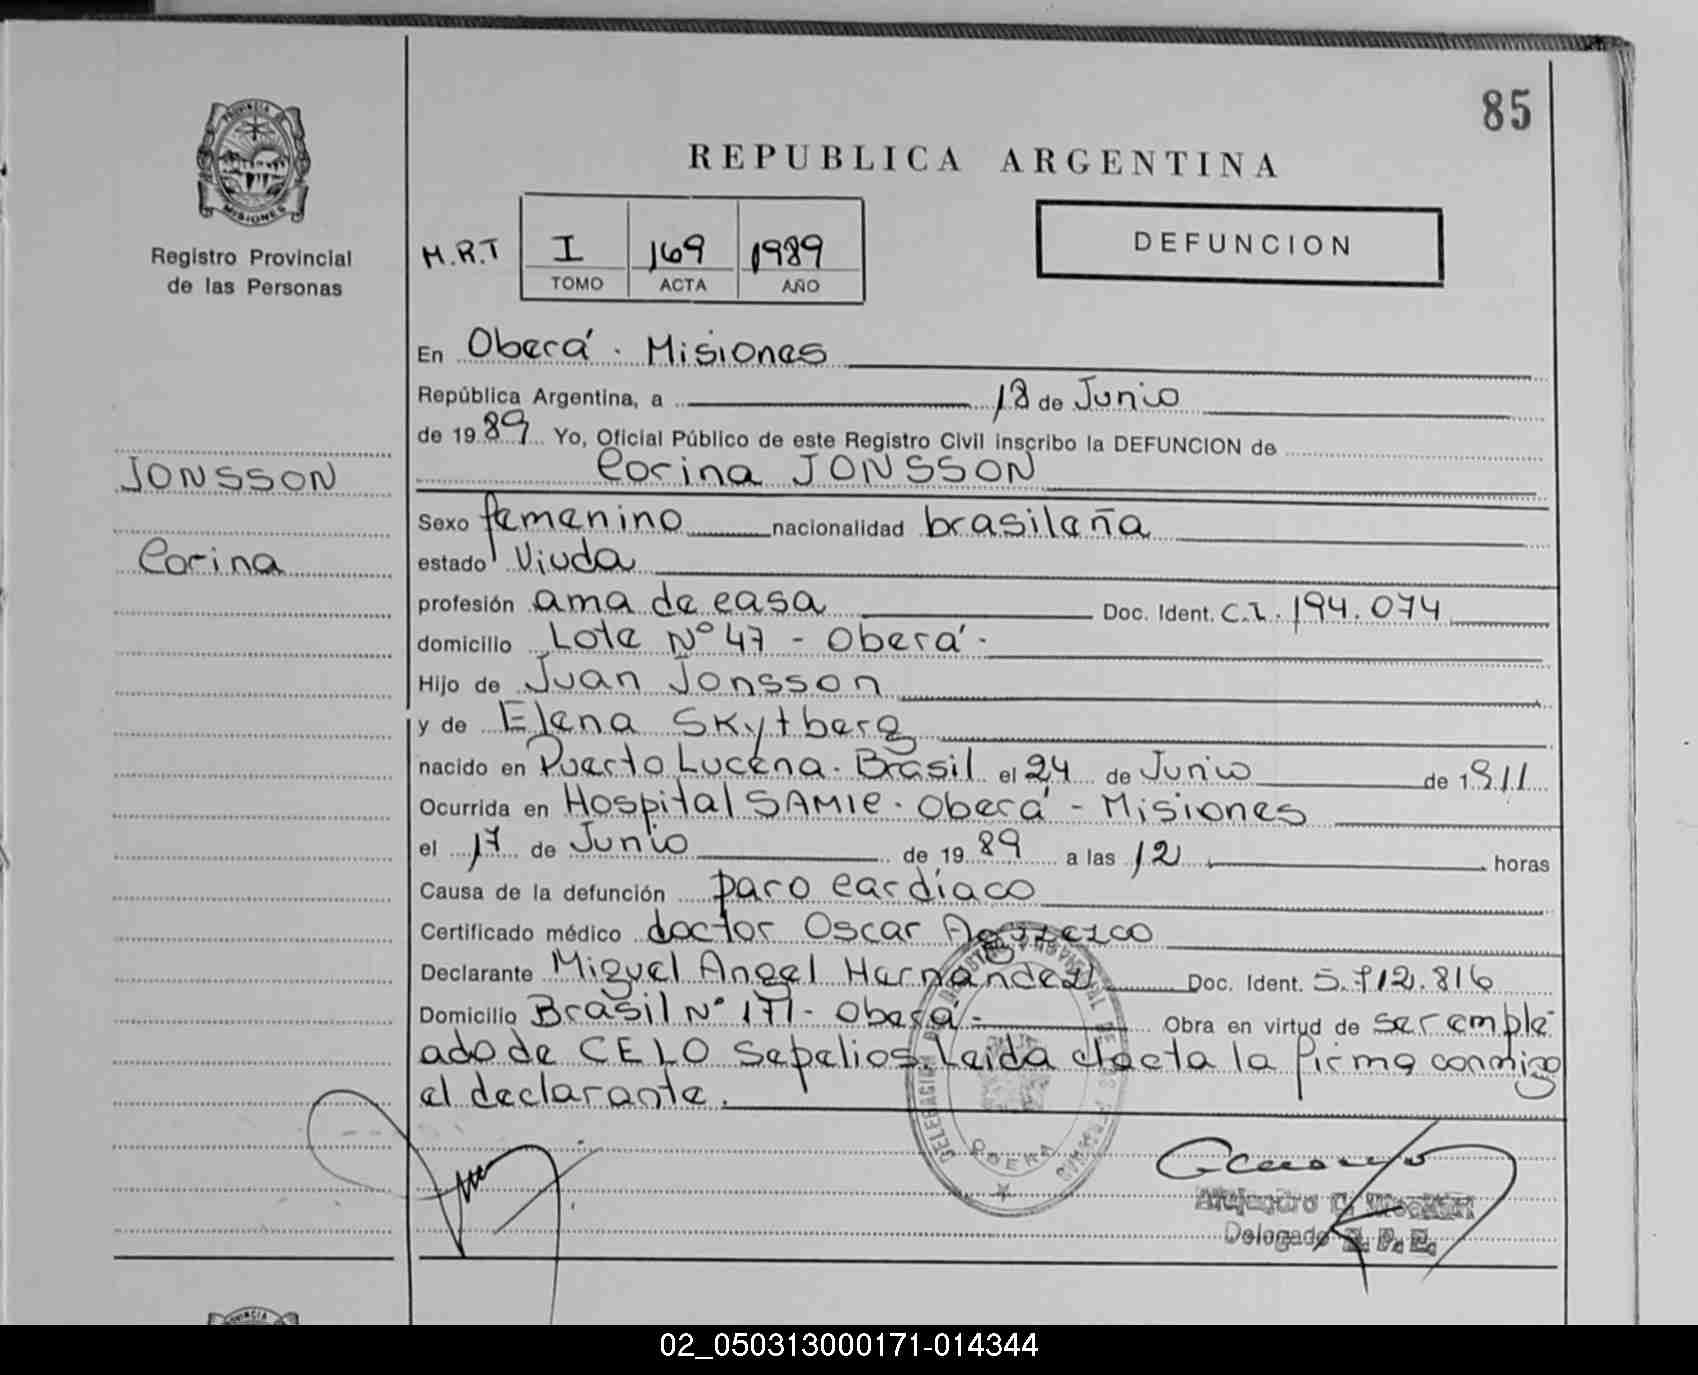 85
PROVINCIA DE
MISIONES
REPUBLICA ARGENTINA
Registro Provincial
de las Personas
M.R.T I 169 1989
TOMO ACTA AÑO
DEFUNCION
En Oberá - Misiones
República Argentina, a 18 de Junio
de 1989 Yo, Oficial Público de este Registro Civil inscribo la DEFUNCION de
Corina JONSSON
JONSSON
Corina
Sexo femenino nacionalidad brasileña
estado Viuda
profesión ama de casa Doc. Ident. C.I. 194.074
domicilio Lote Nº 47 - Oberá -
Hijo de Juan Jonsson
y de Elena Skytberg
nacido en Puerto Lucena - Brasil el 24 de Junio de 1911
Ocurrida en Hospital SAMIC - Oberá - Misiones
el 17 de Junio de 1989 a las 12 horas
Causa de la defunción paro cardíaco
Certificado médico doctor Oscar
Declarante Miguel Angel Hernández Doc. Ident. 5.712.816
Domicilio Brasil Nº 171 - Oberá - Obra en virtud de ser emple-
ado de CELO Sepelios. Leida el acta la firma conmigo
el declarante.
DELEGACION DEL REGISTRO PROVINCIAL DE LAS PERSONAS
OBERA
Alejandro C.
Delegado R. P. P.
02_050313000171-014344